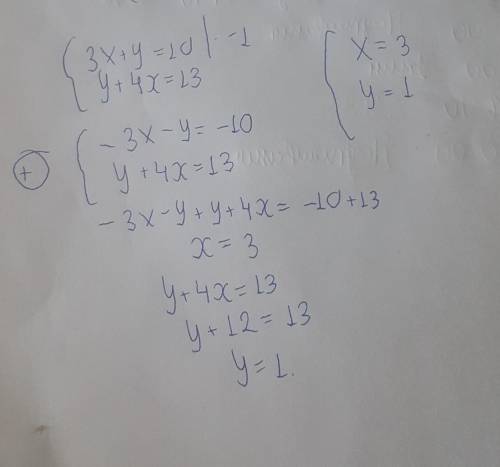 3x+y=10 | · -1
y+4x=13
-3x-y=-10
+
y+4x=13
-3x-y+y+4x=-10+13
x=3
y+4x=13
y+12=13
y=1.
x=3
y=1